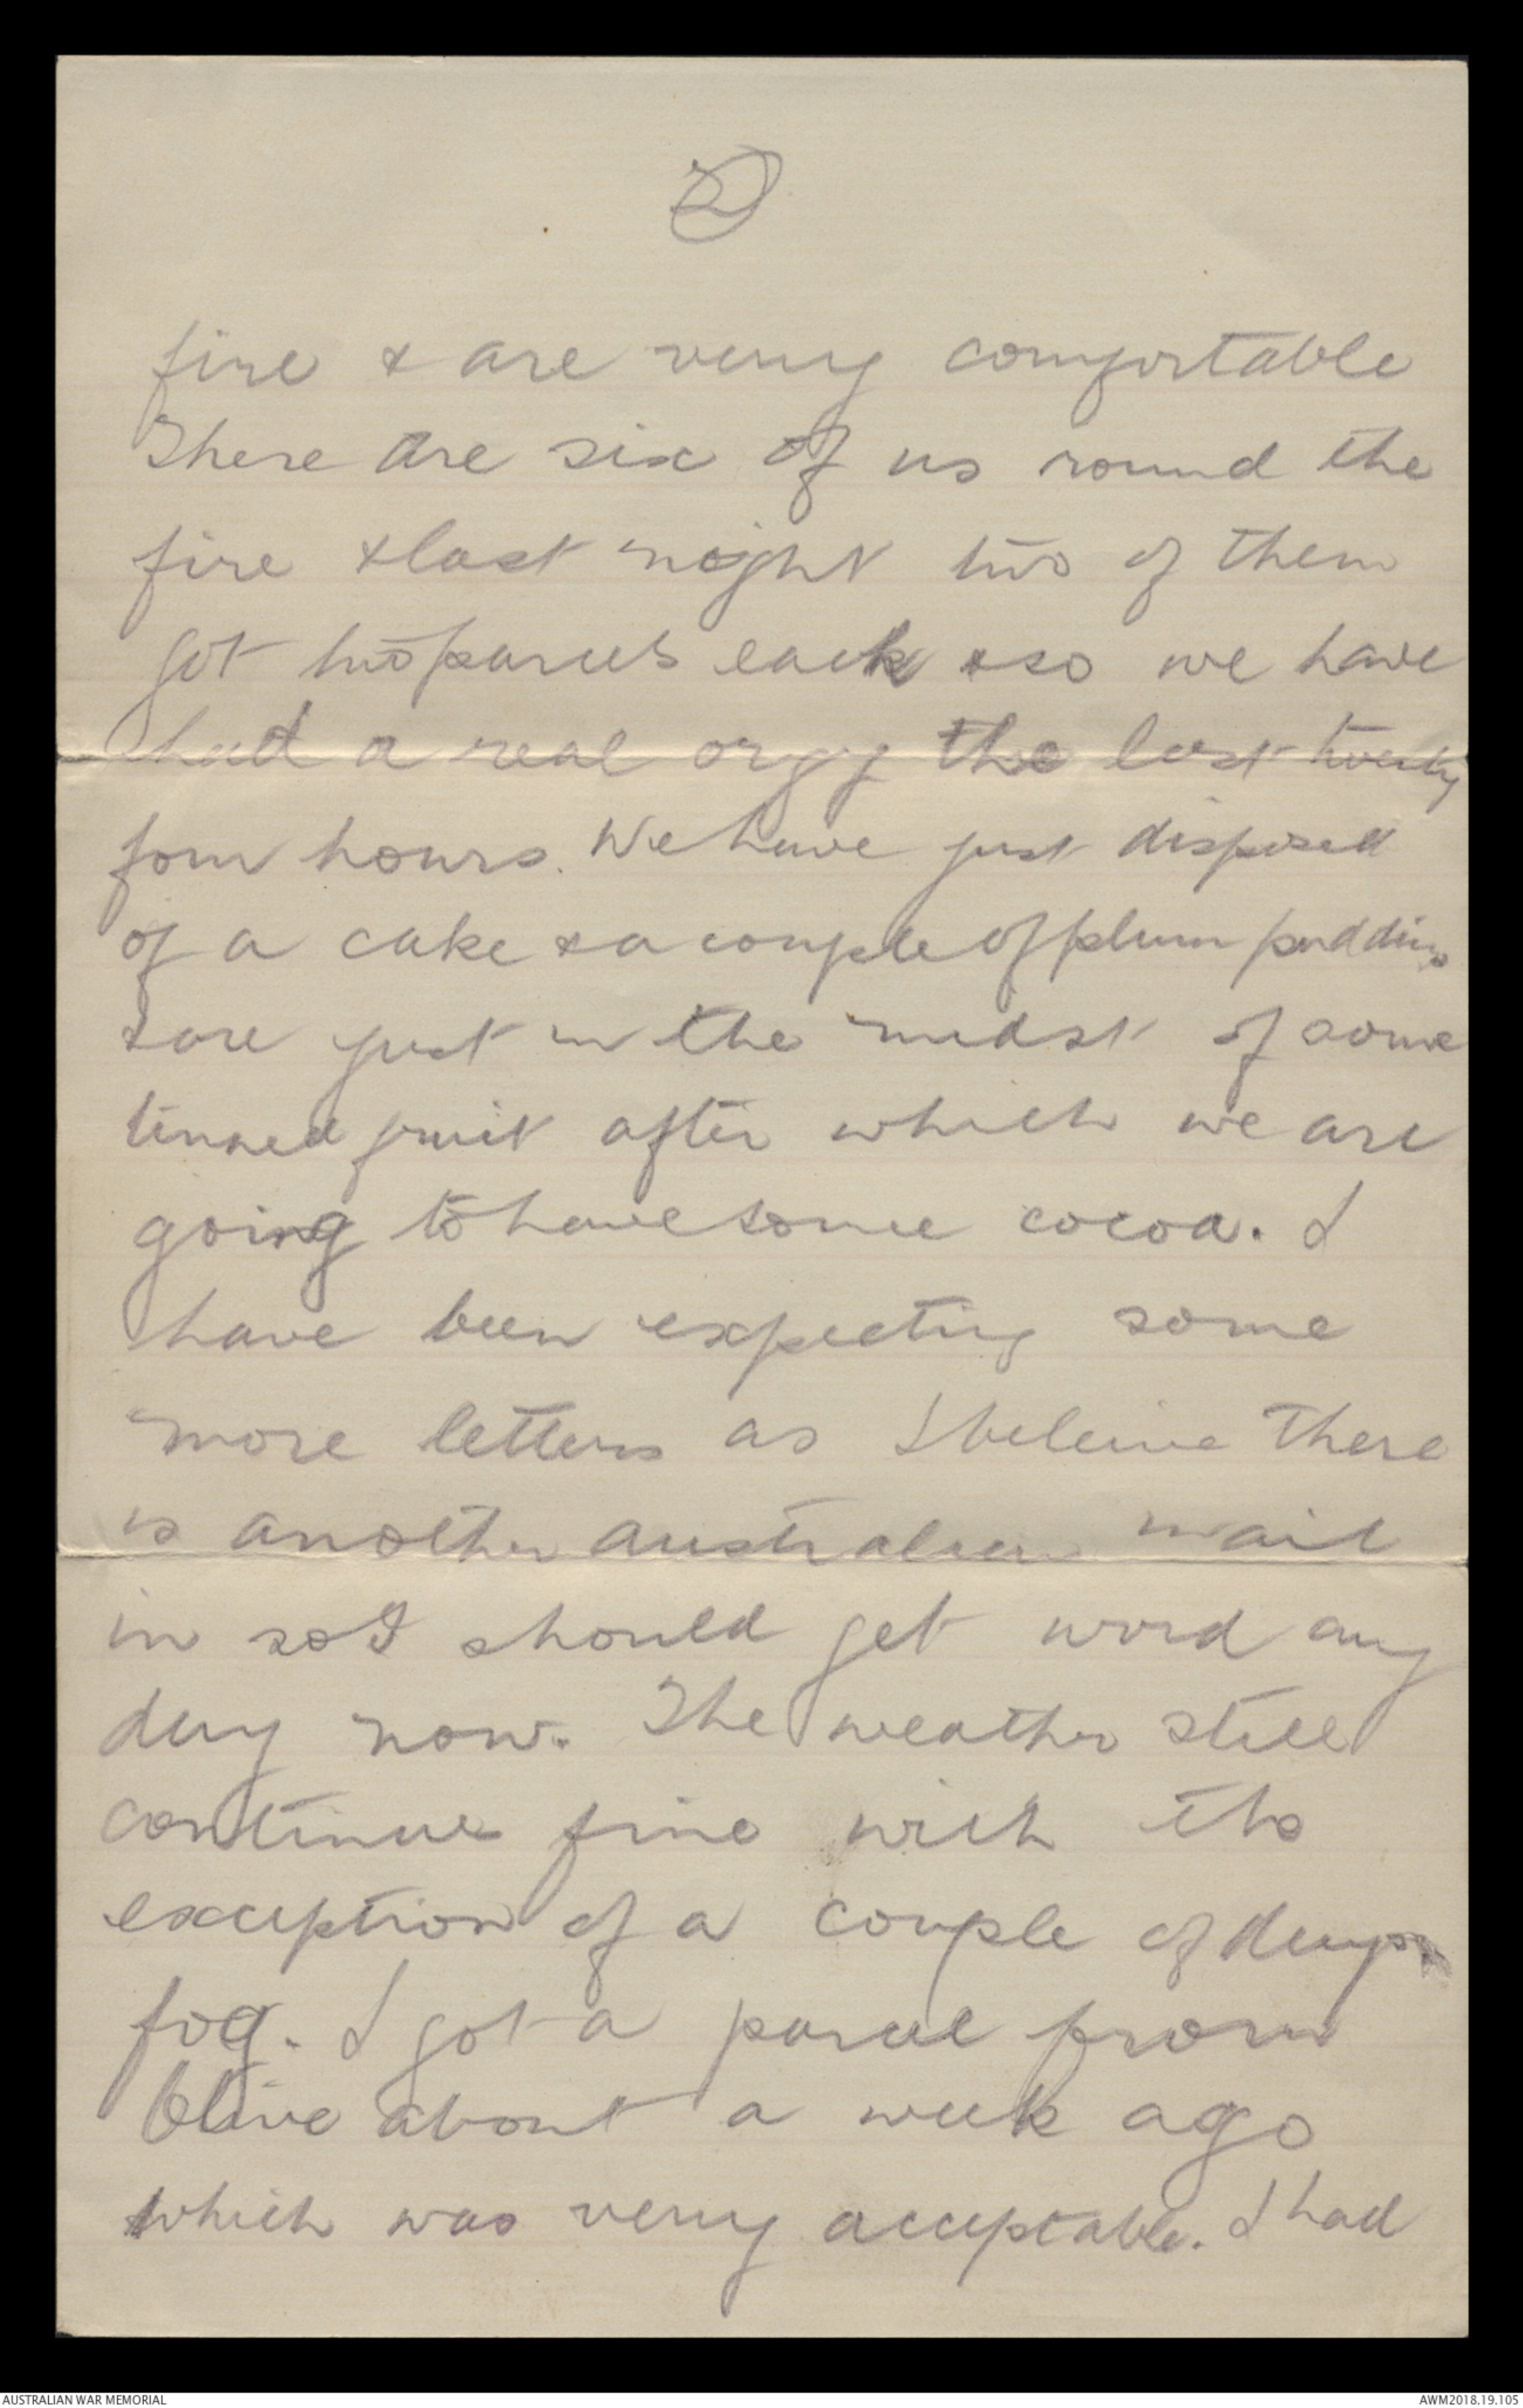 2
fire & are very comfortable
There are six of us round the
fire & last night two of them
got two parcels each & so we have
had a real orgy the last twenty
four hours. We have just disposed
of a cake & a couple of plum puddins
& are just in the midst of some
tinned fruit after which we are
going to have some cocoa. I
have been expecting some
more letters as I beleive there
is another Australian mail
in so I should get word any
day now. The weather still
continues fine with the
exception of a couple of days
fog. I got a parcel from
Olive about a week ago
which was very acceptable. I had
AUSTRALIAN WAR MEMORIAL
AWM2018.19.105